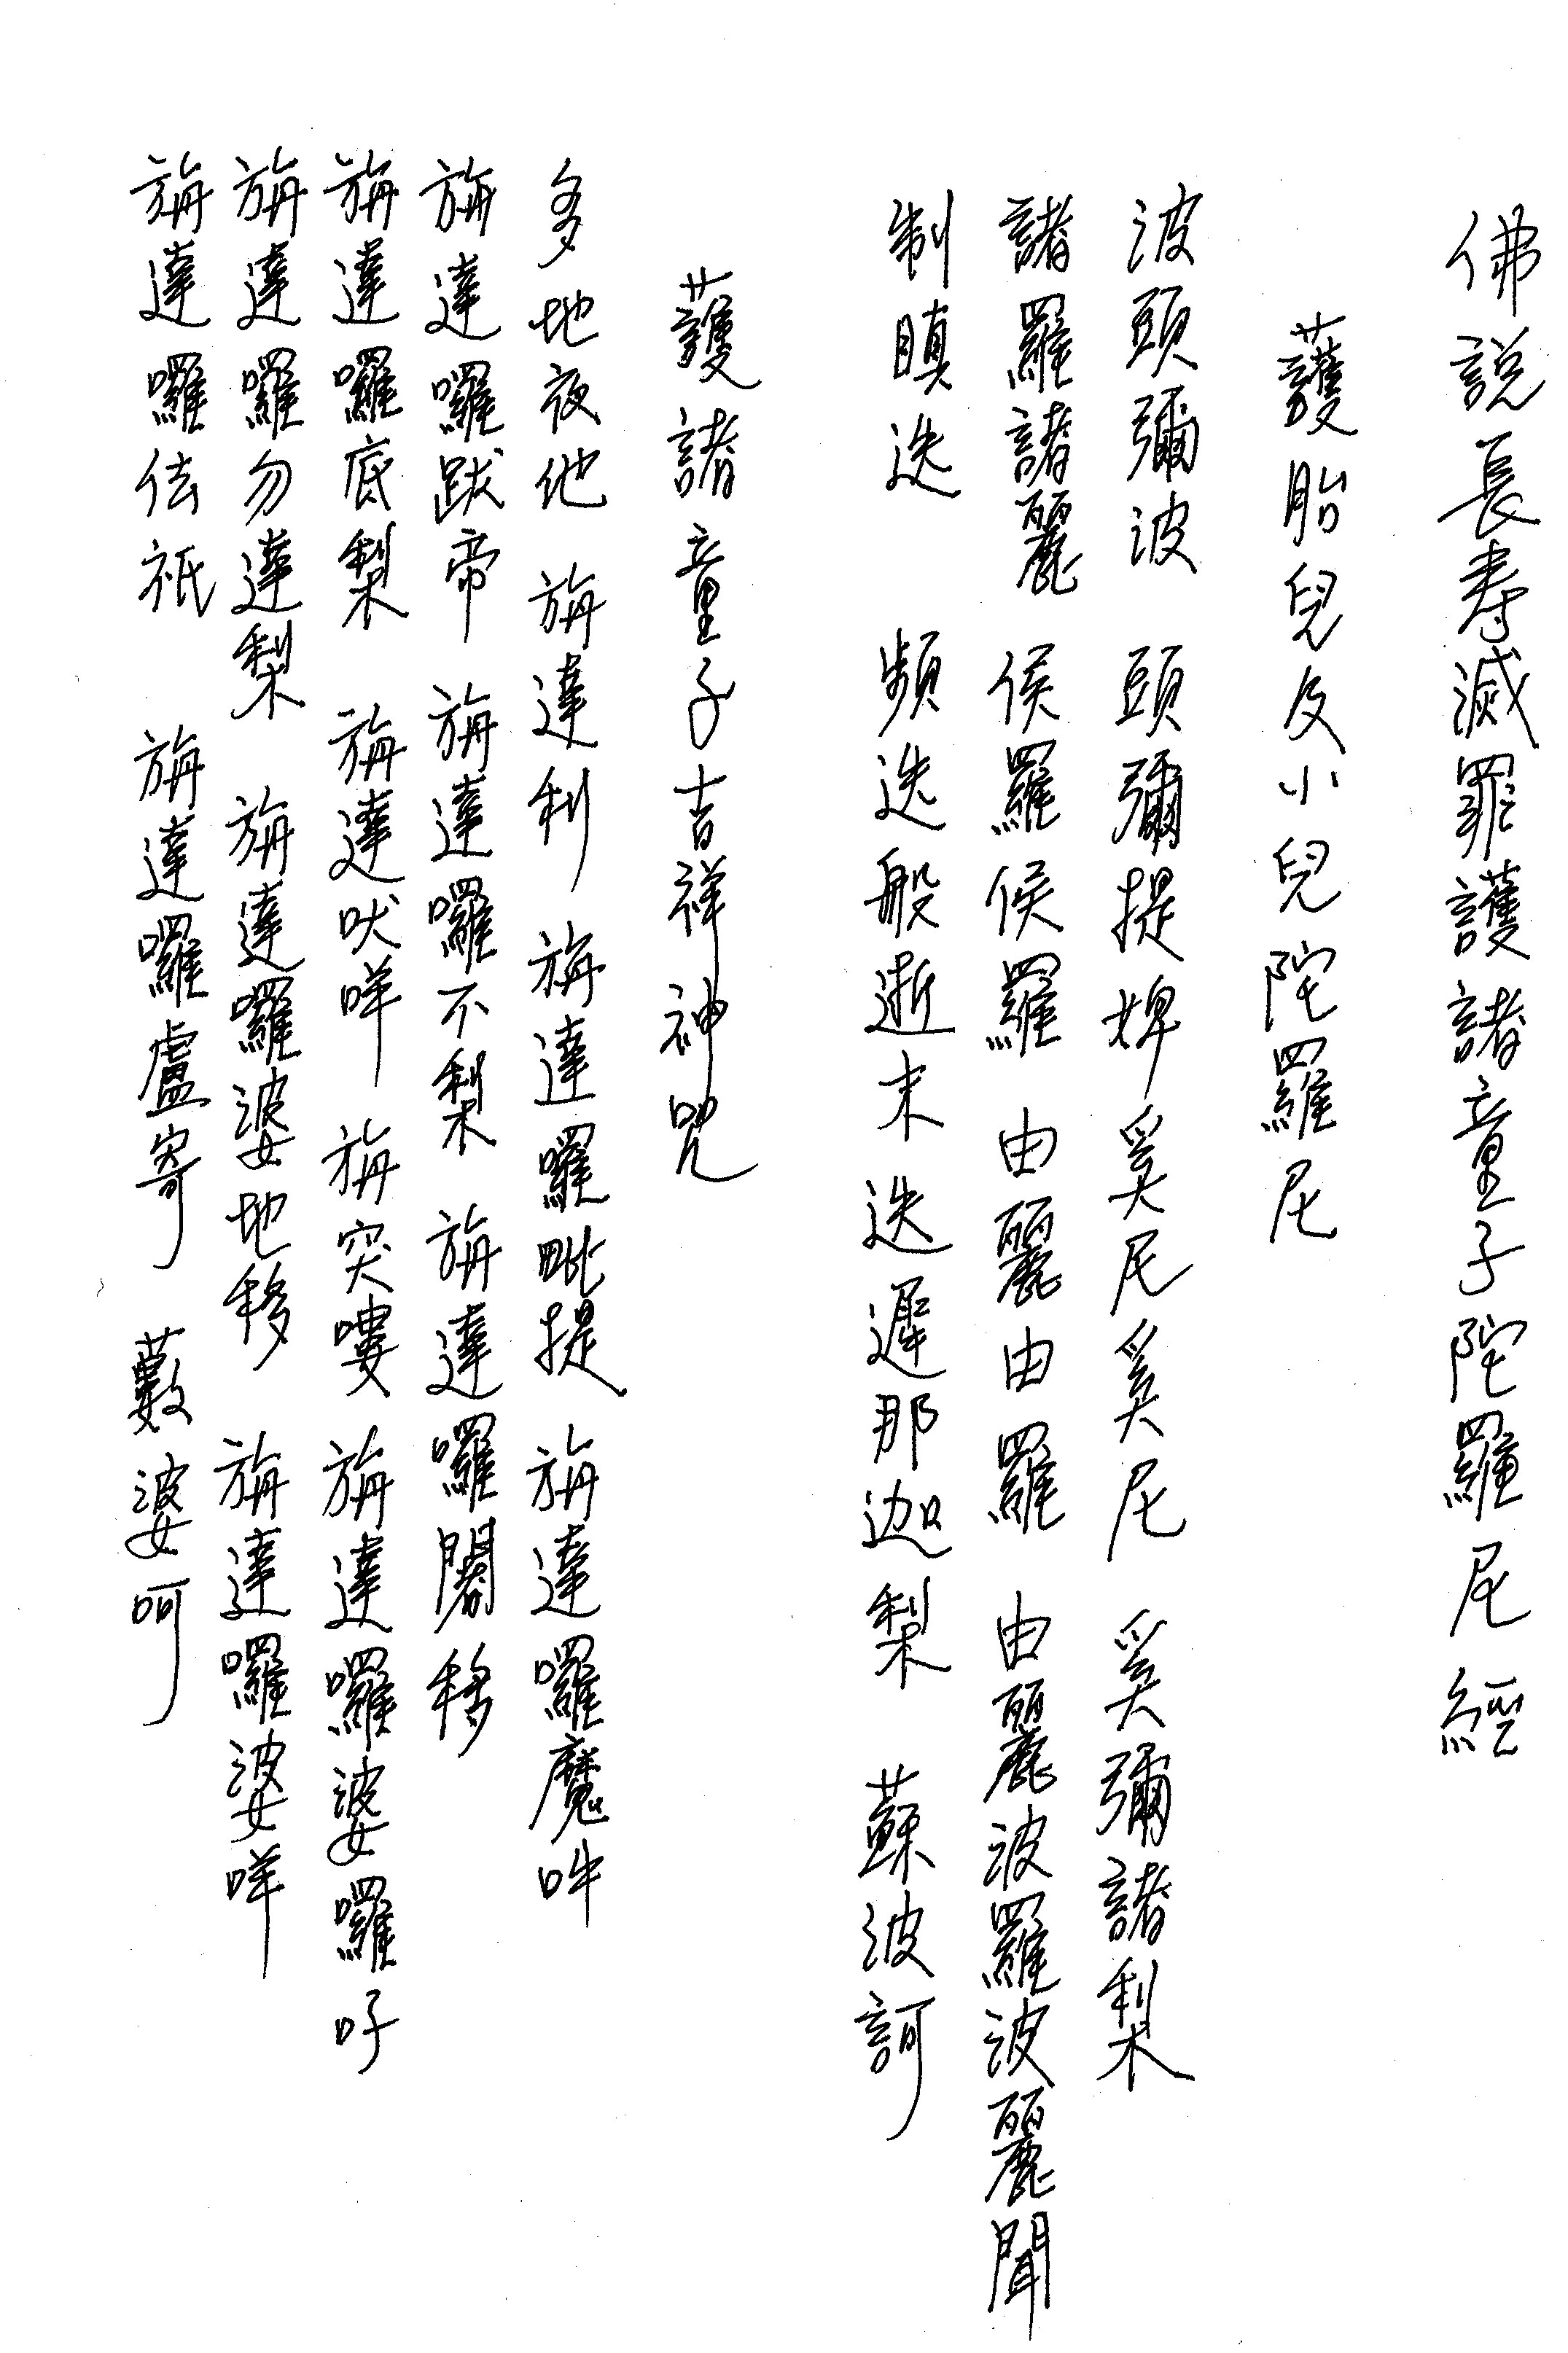 佛說長壽滅罪護諸童子陀羅尼經
護胎兒及小兒陀羅尼
波頭彌波 頭彌提婢 奚尼奚尼 奚彌諸梨
諸羅諸麗 侯羅侯羅 由麗由羅 由麗波羅波麗聞
制瞋迭 頻迭般逝末迭遲那迦梨 蘇波訶
護諸童子吉祥神咒
多地夜他 旃達利 旃達囉毗提 旃達囉魔吽
旃達囉跋帝 旃達囉不梨 旃達囉闍移
旃達囉底梨 旃達吠咩 旃突嘍 旃達囉婆囉吇
旃達囉勿達梨 旃達囉婆地移 旃達囉婆咩
旃達囉佉祇 旃達囉盧寄 藪婆呵